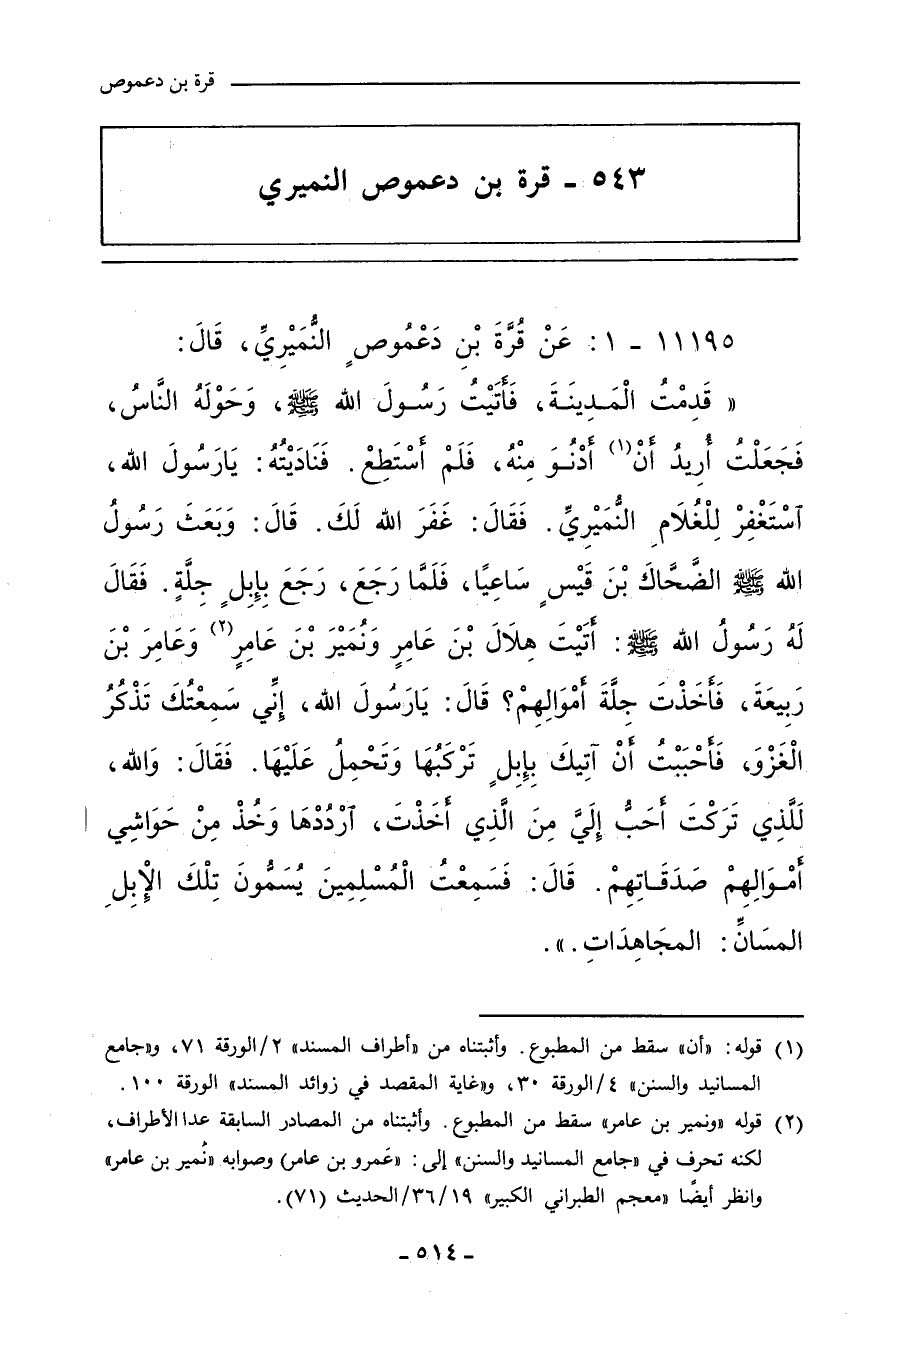 قرة بن دعموص
٥٤٣ - قرة بن دعموص النميري
١١١٩٥ - ١: عَنْ قُرَّةَ بْنِ دَعْمُوصٍ النُّمَيْرِيِّ، قَالَ:
« قَدِمْتُ الْمَدِينَةَ، فَأَتَيْتُ رَسُولَ الله ﷺ، وَحَوْلَهُ النَّاسُ،
فَجَعَلْتُ أُرِيدُ أَنْ(١) أَدْنُوَ مِنْهُ، فَلَمْ أَسْتَطِعْ. فَنَادَيْتُهُ: يَارَسُولَ الله،
ٱسْتَغْفِرْ لِلْغُلَامِ النُّمَيْرِيِّ. فَقَالَ: غَفَرَ الله لَكَ. قَالَ: وَبَعَثَ رَسُولُ
الله ﷺ الضَّحَّاكَ بْنَ قَيْسٍ سَاعِيًا، فَلَمَّا رَجَعَ، رَجَعَ بِإِبِلٍ جِلَّةٍ. فَقَالَ
لَهُ رَسُولُ الله ﷺ: أَتَيْتَ هِلَالَ بْنَ عَامِرٍ وَنُمَيْرَ بْنَ عَامِرٍ(٢) وَعَامِرَ بْنَ
رَبِيعَةَ، فَأَخَذْتَ جِلَّةَ أَمْوَالِهِمْ؟ قَالَ: يَارَسُولَ الله، إِنِّي سَمِعْتُكَ تَذْكُرُ
الْغَزْوَ، فَأَحْبَبْتُ أَنْ آتِيكَ بِإِبِلٍ تَرْكَبُهَا وَتَحْمِلُ عَلَيْهَا. فَقَالَ: وَالله،
لَلَّذِي تَرَكْتَ أَحَبُّ إِلَيَّ مِنَ الَّذِي أَخَذْتَ، ٱرْدُدْهَا وَخُذْ مِنْ حَوَاشِي
أَمْوَالِهِمْ صَدَقَاتِهِمْ. قَالَ: فَسَمِعْتُ الْمُسْلِمِينَ يُسَمُّونَ تِلْكَ الإِبِلِ
المسَانِّ: المجَاهِدَاتِ.».
(١) قوله: «أن» سقط من المطبوع. وأثبتناه من «أطراف المسند» ٢/الورقة ٧١، و«جامع
المسانيد والسنن» ٤/الورقة ٣٠، و«غاية المقصد في زوائد المسند» الورقة ١٠٠.
(٢) قوله «ونمير بن عامر» سقط من المطبوع. وأثبتناه من المصادر السابقة عدا الأطراف،
لكنه تحرف في «جامع المسانيد والسنن» إلى: «عَمرو بن عامر) وصوابه «نُمير بن عامر»
وانظر أيضًا «معجم الطبراني الكبير» ٣٦/١٩/الحديث (٧١).
- ٥١٤ -